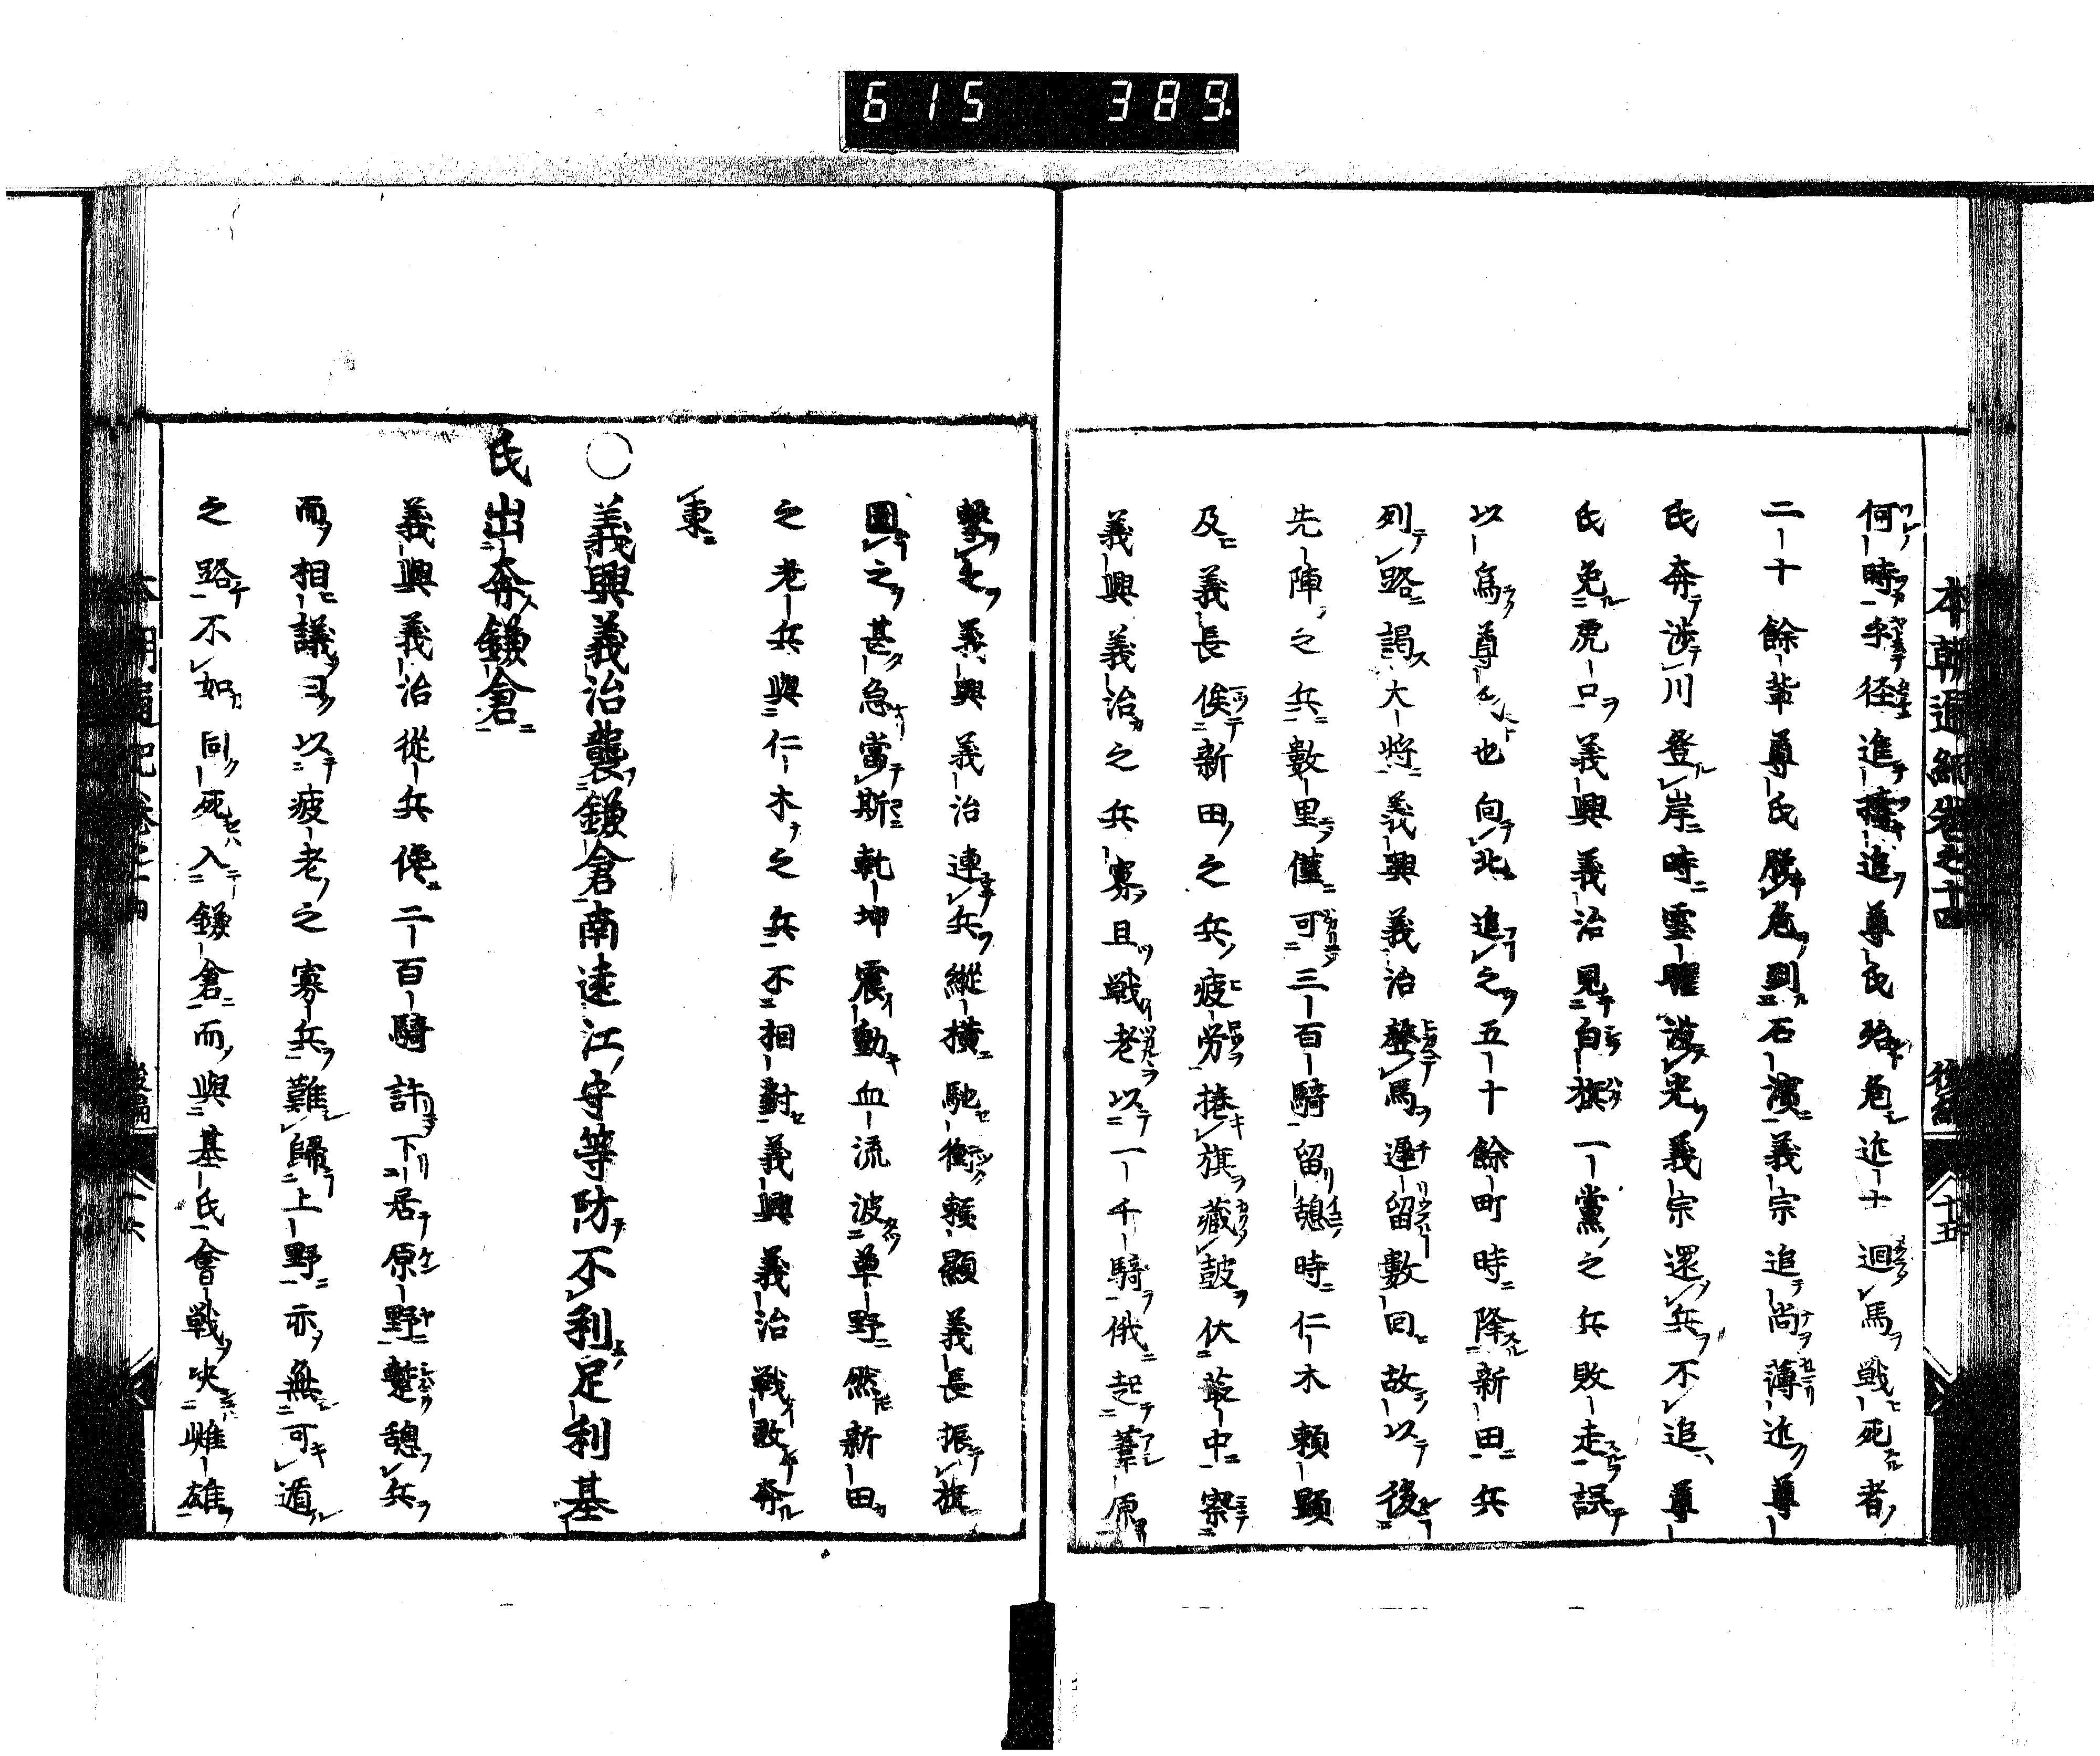 615 389
本朝通紀卷之十四 後編 十五
何時乎径進擡追尊氏殆危近士迴馬戦死者
二十餘輩尊氏脱危到石濱義宗追尚薄近尊
氏奔渉川登岸時雲曜波光義宗還兵不追尊
氏免虎口義興義治見白旗一黨之兵敗走誤
以為尊氏也向北追之五十餘町時降新田兵
列路謁大将義興義治整馬遲留數回故以後
先陣之兵數里僅可三百騎留憩時仁木頼顕
及義長俟新田之兵疲労捲旗藏鼓伏叢中察
義興義治之兵寡且戦老以一千騎俄起葦原
撃之義興義治連兵縦横馳衝頼顯義長振旗
圍之甚急當斯軌坤震動血流波単野然新田
之老兵與仁木之兵不相對義興義治戦敗奔
東
○義興義治襲鎌倉南遠江守等防不利足利基
氏出奔鎌倉
義興義治從兵儳二百騎許下居原野蹔憩兵
而相議曰以疲老之寡兵難歸上野亦無可遁
之路不如同死入鎌倉而與基氏會戦决雌雄